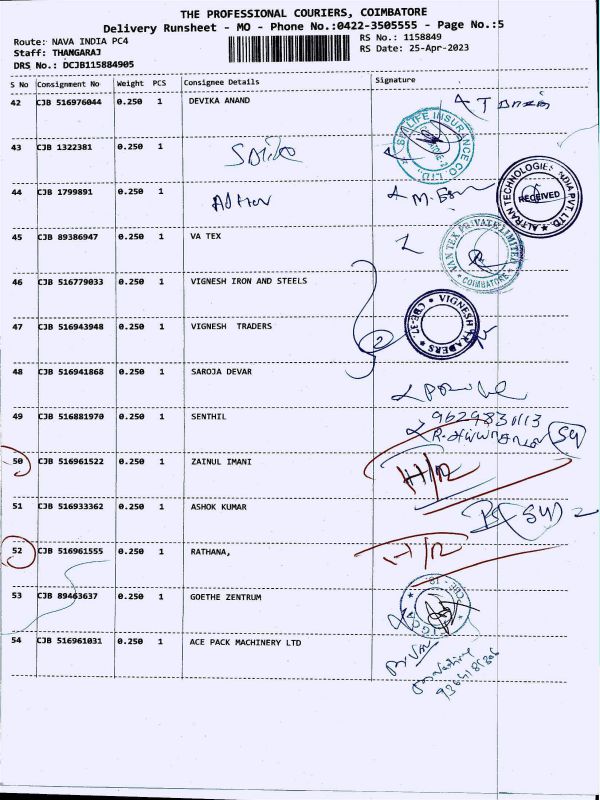 THE PROFESSIONAL COURIERS, COIMBATORE
Delivery Runsheet - MO - Phone No.:0422-3505555 - Page No.:5
Route: NAVA INDIA PC4
RS No.: 1158849
Staff: THANGARAJ
RS Date: 25-Apr-2023
DRS No.: DCJB115884905
S No Consignment No Weight PCS Consignee Details Signature
42 CJB 516976044 0.250 1 DEVIKA ANAND
43 CJB 1322381 0.250 1
SBI LIFE INSURANCE CO. LTD.
44 CJB 1799891 0.250 1
ALTRAN TECHNOLOGIES INDIA PVT. LTD. RECEIVED
45 CJB 89386947 0.250 1 VA TEX
VAN TEX PRIVATE LIMITED COIMBATORE
46 CJB 516779033 0.250 1 VIGNESH IRON AND STEELS
47 CJB 516943948 0.250 1 VIGNESH TRADERS
VIGNESH TRADERS CBE-37
48 CJB 516941868 0.250 1 SAROJA DEVAR
49 CJB 516881970 0.250 1 SENTHIL
50 CJB 516961522 0.250 1 ZAINUL IMANI H/R
51 CJB 516933362 0.250 1 ASHOK KUMAR
52 CJB 516961555 0.250 1 RATHANA, H/R
53 CJB 89463637 0.250 1 GOETHE ZENTRUM
54 CJB 516961031 0.250 1 ACE PACK MACHINERY LTD